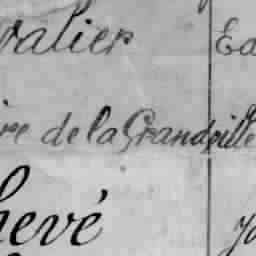 valier Ed
ire de la Grandville
hevé